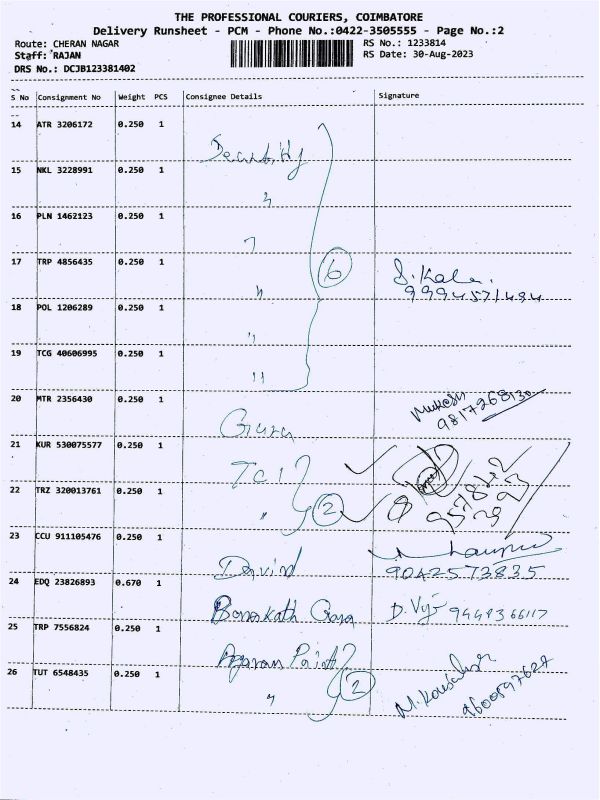 THE PROFESSIONAL COURIERS, COIMBATORE
Delivery Runsheet - PCM - Phone No.:0422-3505555 - Page No.:2
Route: CHERAN NAGAR RS No.: 1233814
Staff: RAJAN RS Date: 30-Aug-2023
DRS No.: DCJB123381402
S No Consignment No Weight PCS Consignee Details Signature
14 ATR 3206172 0.250 1
15 NKL 3228991 0.250 1
16 PLN 1462123 0.250 1
17 TRP 4856435 0.250 1 6 S. Kala.
9994571494
18 POL 1206289 0.250 1
19 TCG 40606995 0.250 1
20 MTR 2356430 0.250 1 Guru Mukesh
9817268130
21 KUR 530075577 0.250 1 TCI
22 TRZ 320013761 0.250 1 " 2
23 CCU 911105476 0.250 1 David 9042573835
24 EDQ 23826893 0.670 1 D. Vij
25 TRP 7556824 0.250 1 Paint
26 TUT 6548435 0.250 1 " 2